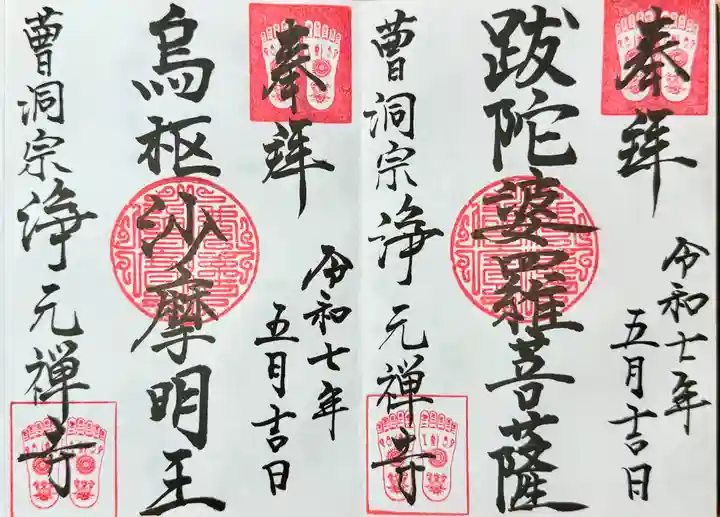 奉拝
令和七年
五月吉日
跋陀婆羅菩薩
曹洞宗 浄元禅寺
奉拝
令和七年
五月吉日
烏枢沙摩明王
曹洞宗 浄元禅寺